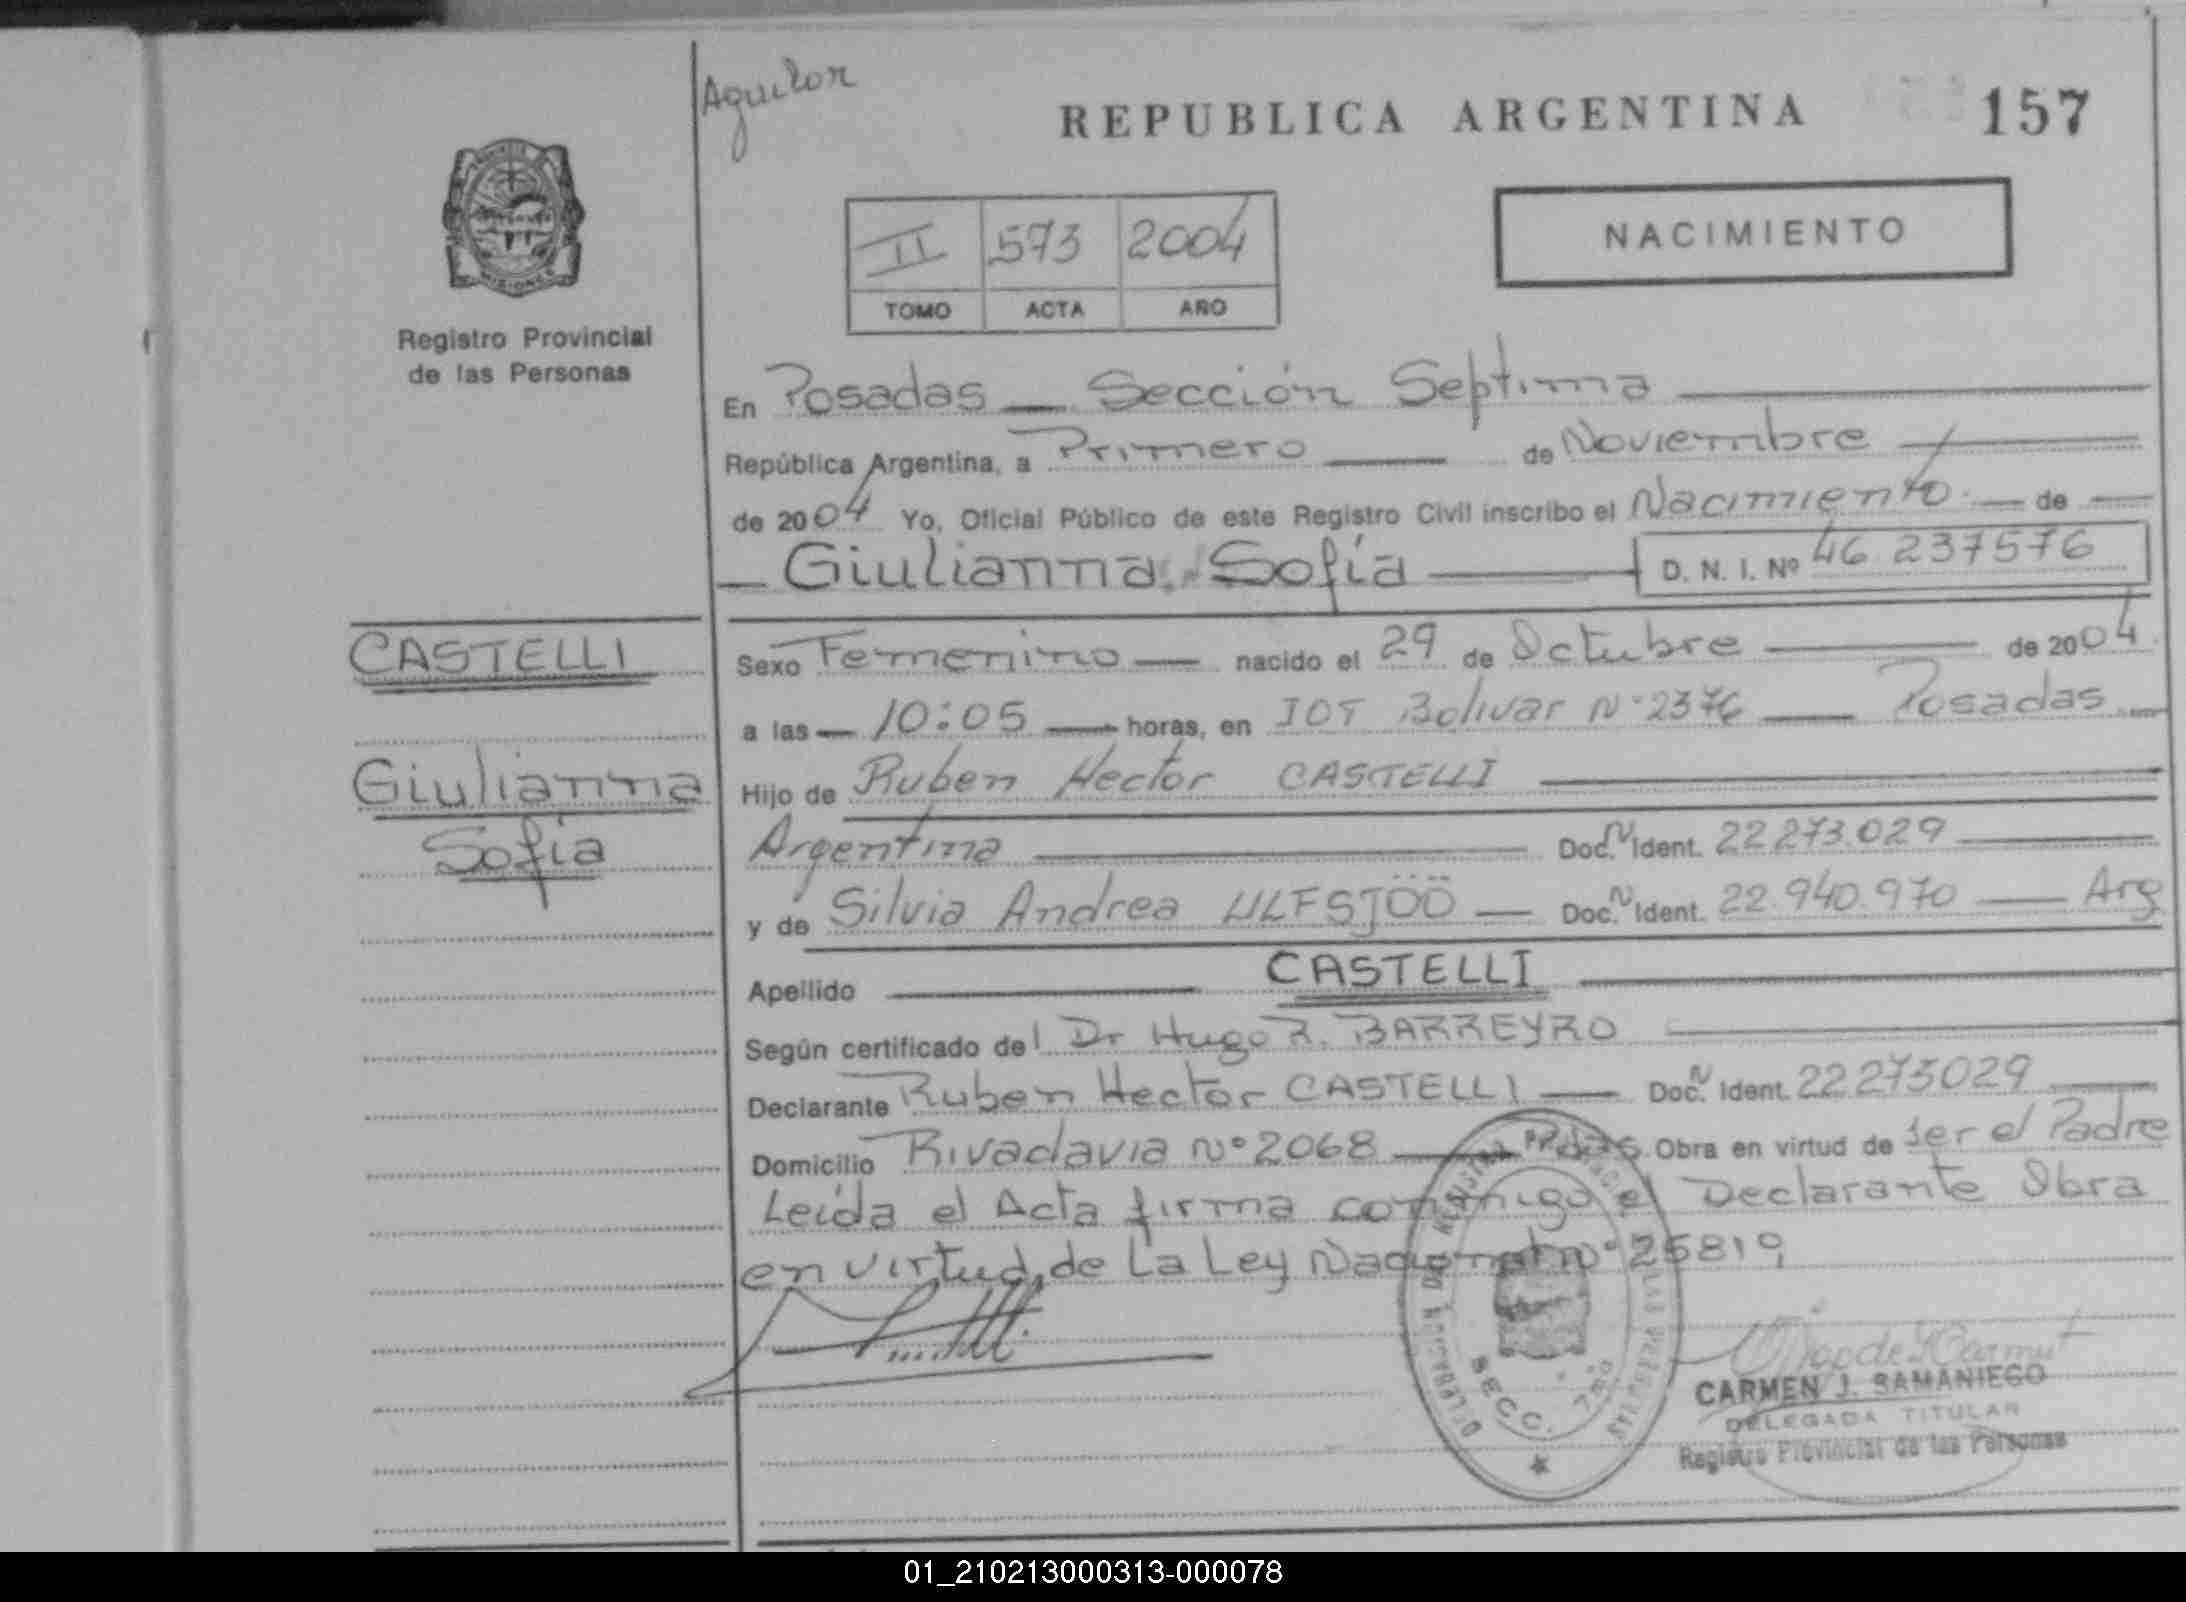 Aguilar
REPUBLICA ARGENTINA
157
MISIONES
Registro Provincial
de las Personas
II 573 2004
TOMO ACTA AÑO
NACIMIENTO
En Posadas — Sección Septima
República Argentina, a Primero — de Noviembre
de 2004 Yo, Oficial Público de este Registro Civil inscribo el Nacimiento — de —
— Giulianna Sofía — D. N. I. Nº 46.237576
CASTELLI
Giulianna
Sofía
Sexo Femenino — nacido el 29 de Octubre — de 2004.
a las — 10:05 — horas, en IOT Bolivar Nº 2376 — Posadas —
Hijo de Ruben Hector CASTELLI
Argentina — Doc. N Ident. 22.273.029 —
y de Silvia Andrea ULFSJÖÖ — Doc. N Ident. 22.940.970 — Arg
Apellido — CASTELLI —
Según certificado del Dr Hugo R. BARREYRO
Declarante Ruben Hector CASTELLI — Doc. N Ident. 22273029 —
Domicilio Rivadavia Nº 2068 — Pdas. Obra en virtud de ser el Padre
Leída el Acta firma conmigo el Declarante Obra
en virtud de La Ley Nacional Nº 25819
SECC. 7ma
CARMEN J. SAMANIEGO
DELEGADA TITULAR
Registro Provincial de las Personas
01_210213000313-000078